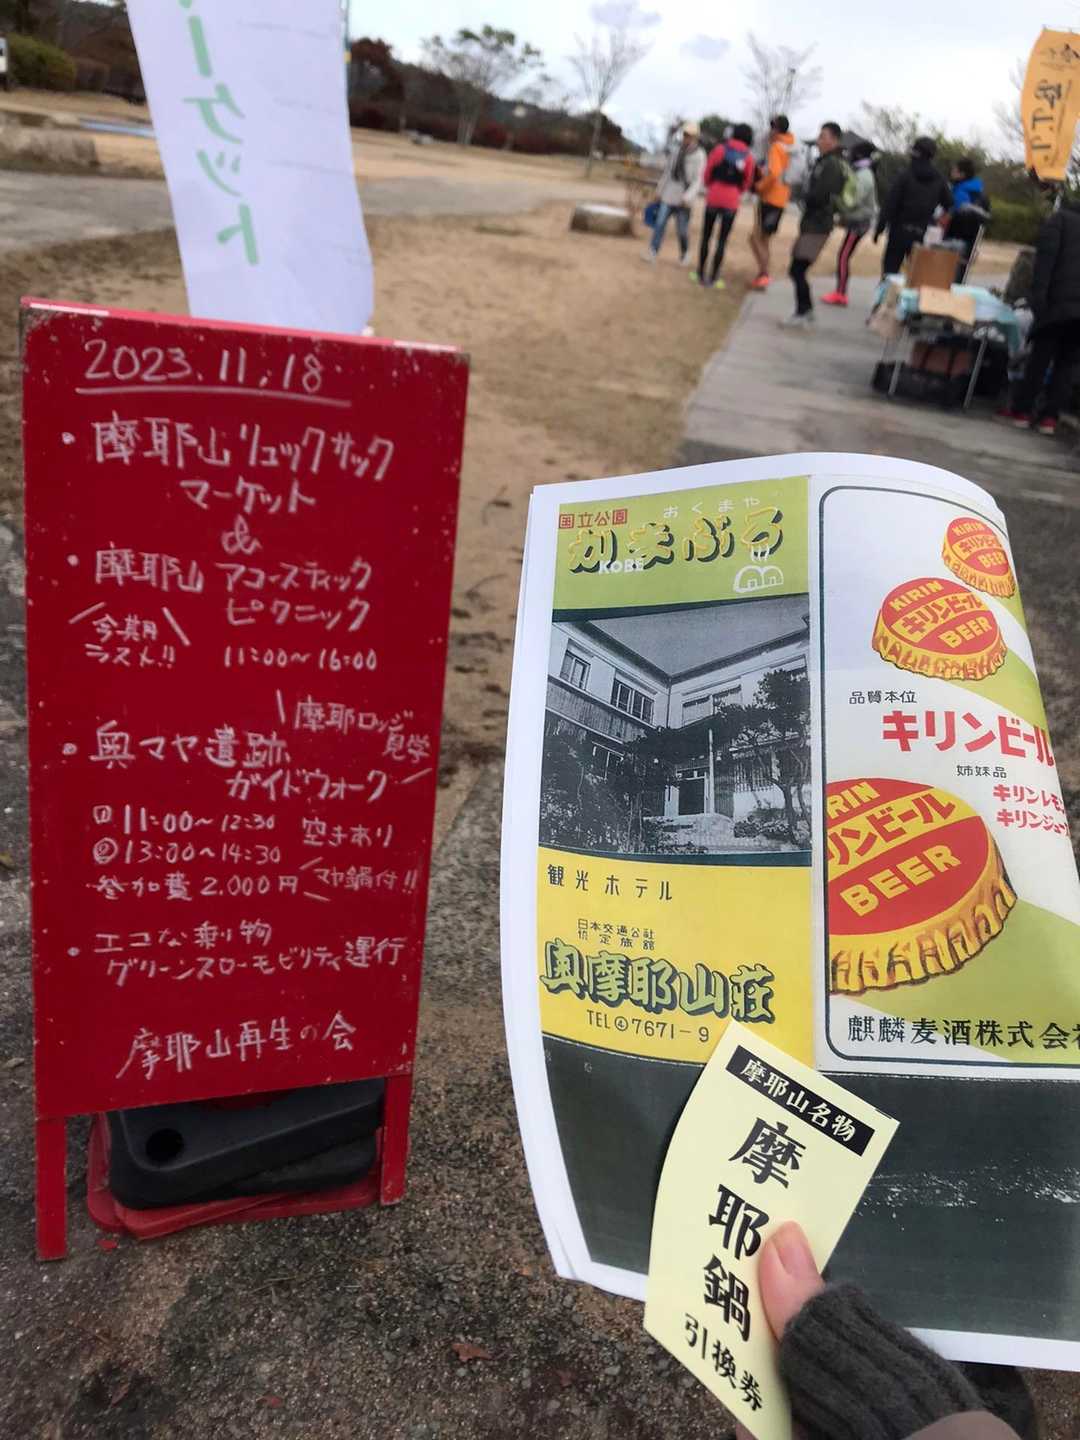 ーケット
2023.11.18
・摩耶山リュックサック
マーケット
&
・摩耶山アコースティック
ピクニック
今期
ラスト!!
11:00～16:00
摩耶ロッジ
見学
・奥マヤ遺跡
ガイドウォーク
①11:00～12:30 空きあり
②13:00～14:30
参加費 2.000円 マヤ鍋付!!
・エコな乗り物
グリーンスローモビリティ運行
摩耶山再生の会
国立公園
おくまや
かまぶろ
KOBE
観光ホテル
日本交通公社
協定旅館
奥摩耶山荘
TEL④7671-9
KIRIN
キリンビール
BEER
KIRIN
キリンビール
BEER
品質本位
キリンビール
姉妹品
キリンレモ
キリンジュー
RIN
リンビール
BEER
麒麟麦酒株式会社
摩耶山名物
摩耶鍋
引換券